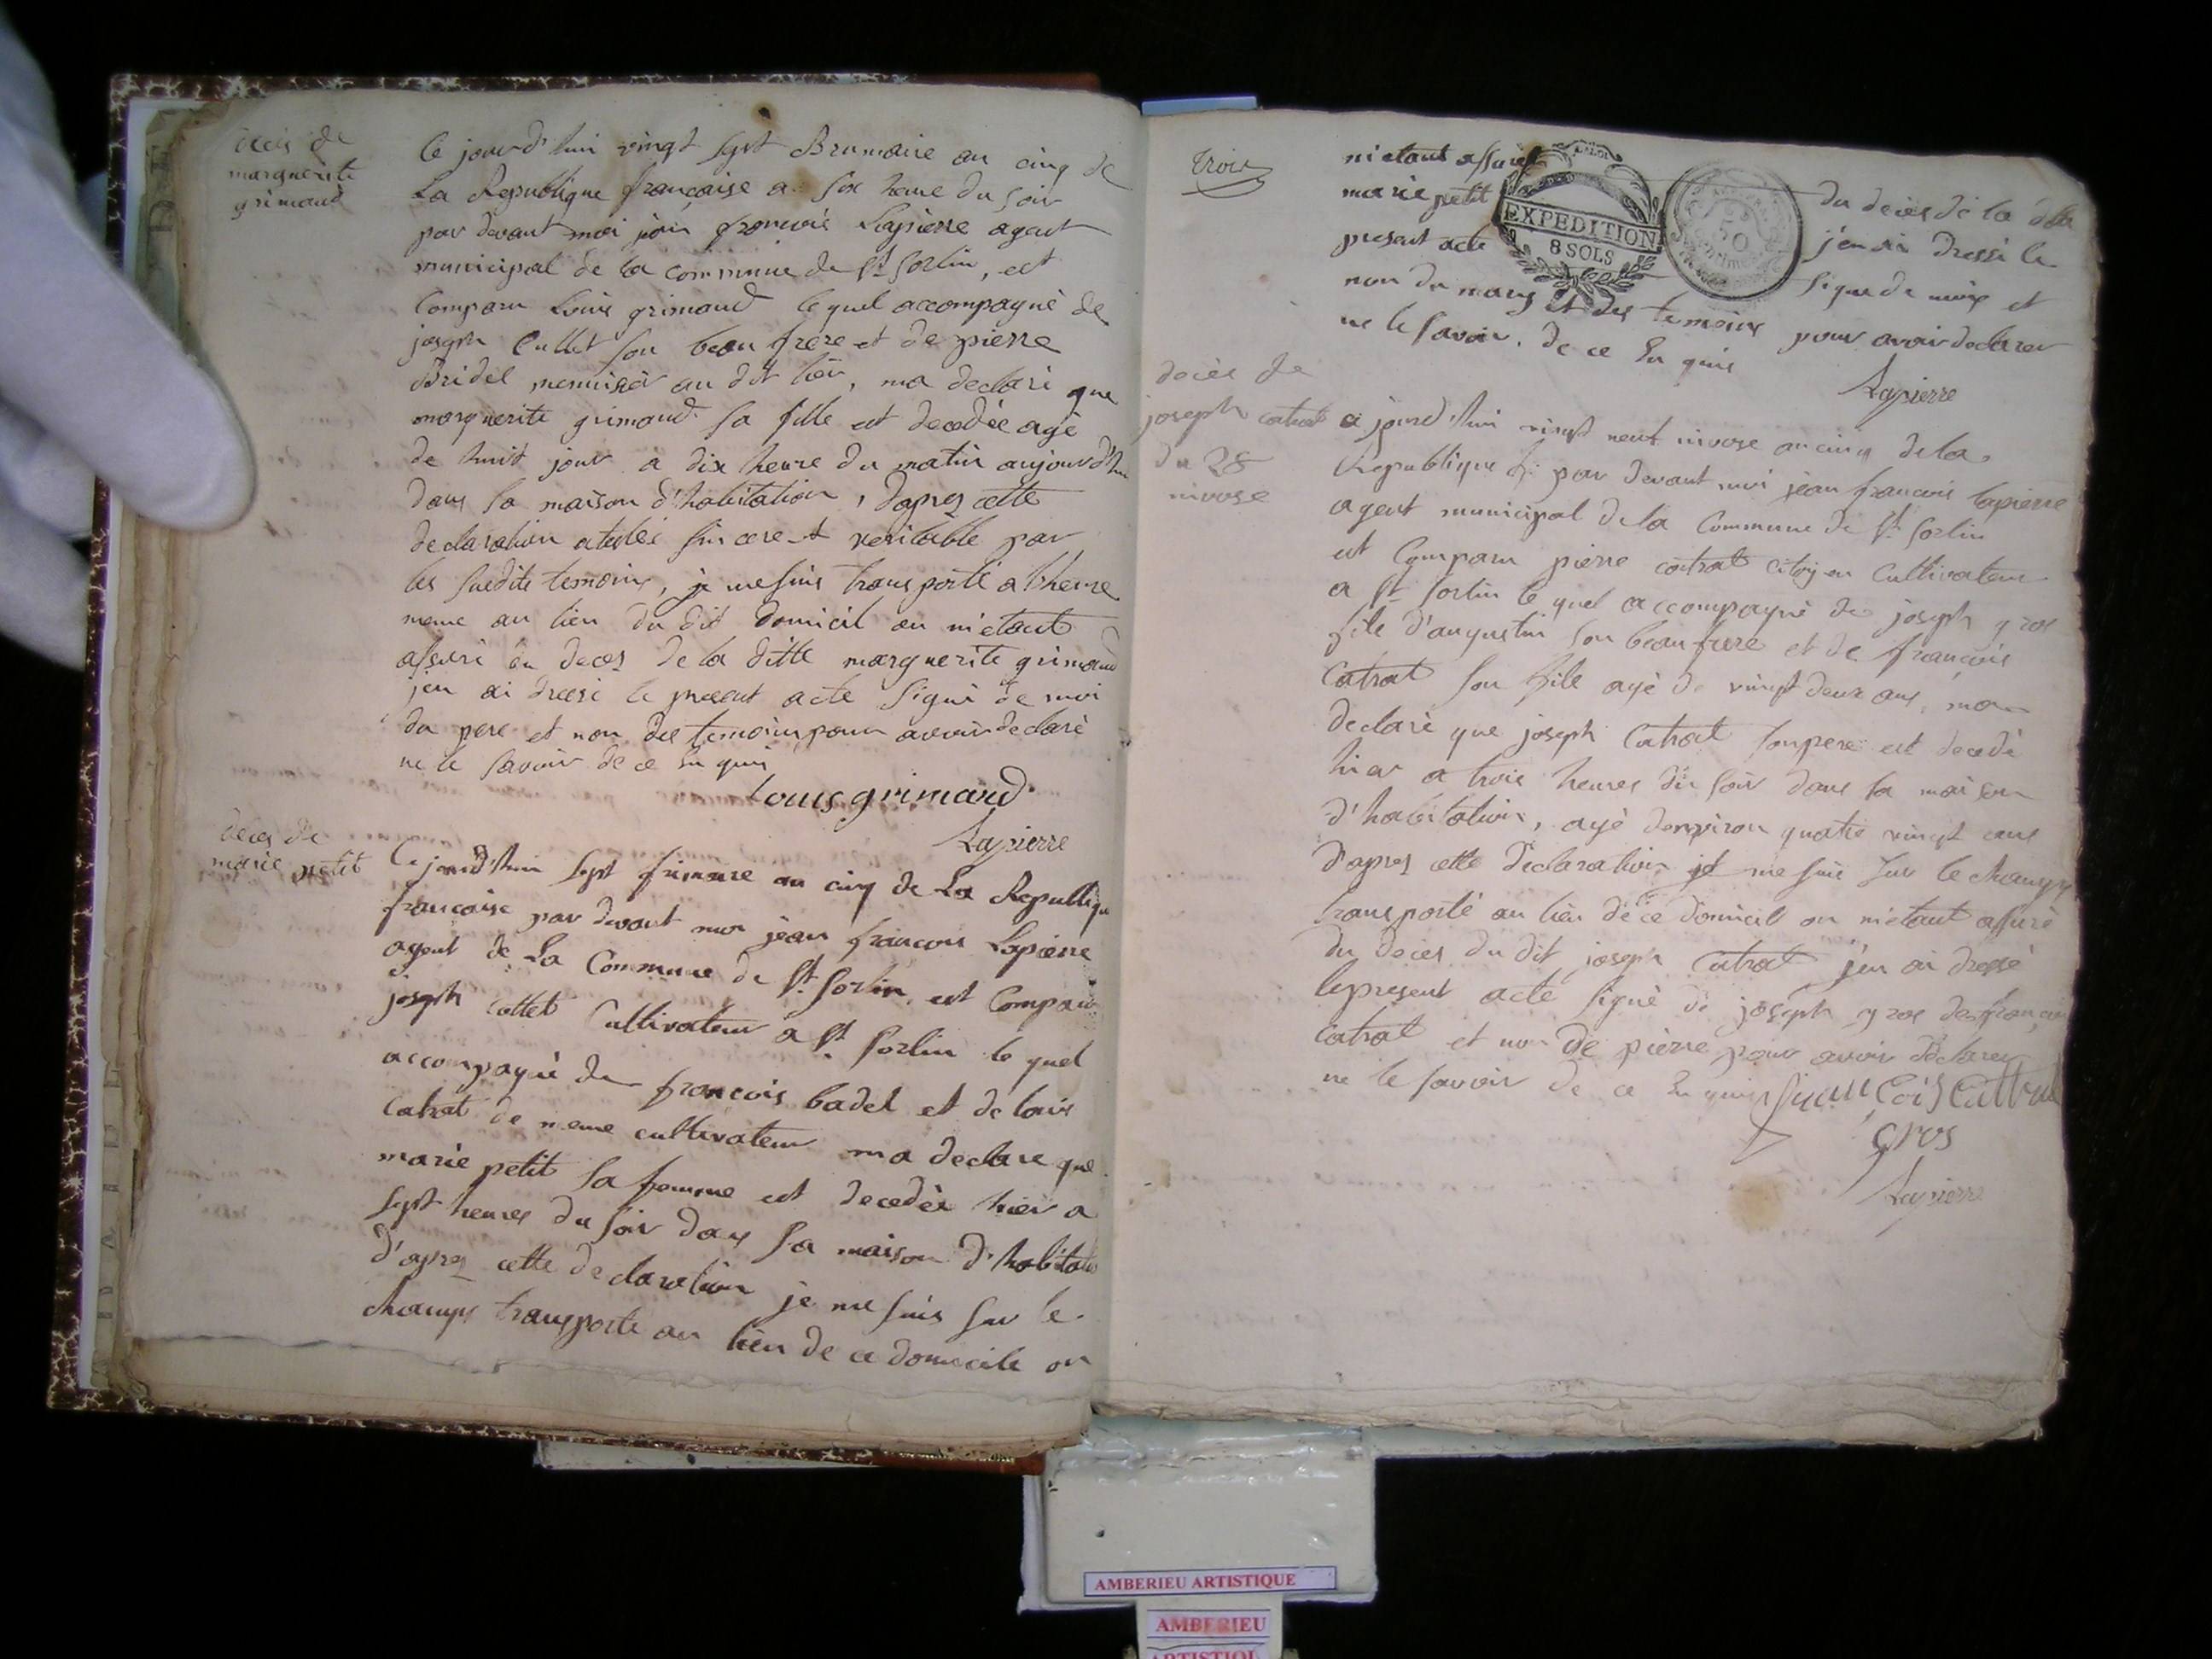 décès de
marguerite
grimaud
Ce jourd'hui vingt sept Brumaire an cinq de
La Republique française a six heure du soir
par devant moi jean francois Lapierre agent
municipal de la commune de St Sorlin, est
Comparu Louis grimaud lequel accompagné de
joseph Cullet son beau frere et de pierre
Bridel menuisier au dit lieu, ma declaré que
marguerite grimaud sa fille est decedée agé
de huit jour a dix heure du matin aujourd'hui
dans sa maison d'habitation, dapres cette
declaration atestée sincere et veritable par
les susdits temoins, je me suis transporté a lheure
meme au lieu du dit domicil ou m'etant
assuré du deces de la ditte marguerite grimaud
jen ai dressé le present acte signé de moi
du pere et non des temoins pour avoir declaré
ne le savoir de ce en quis
Louis grimaud
Lapierre
deces de
marie petit
Ce jourd'hui sept frimaire an cinq de La Republique
francaise par devant moi jean francois Lapierre
agent de La Commune de St Sorlin est Comparu
joseph collet Cultivateur a St Sorlin le quel
accompagné de francois badel et de louis
Catrat de meme cultivateur ma declare que
marie petit sa femme est decedée hier a
sept heures du soir dans sa maison d'habitation
d'apres cette declaration je me suis sur le
champs transporté au lieu de ce domicile ou
trois
m'etant assuré du deces de la dite
marie petit j'en ai dressé le
present acte signé de moi et
non du mary et des temoins pour avoir declarer
ne le savoir. de ce en quis
Lapierre
EXPEDITION
8 SOLS
50
centimes
deces de
joseph catrat
du 28
nivose
a jourd'hui vingt neuf nivose an cinq de la
Republique f. par devant moi jean francois lapierre
agent municipal de la Commune de St Sorlin
est Comparu pierre catrat citoyen Cultivateur
a St Sorlin le quel accompagné de joseph gros
fils d'augustin son beau frere et de francois
Catrat son fils agé de vingt deux ans, ma
declaré que joseph Catrat son pere est decedé
hier a trois heures du soir dans sa maison
d'habitation, agé denviron quatre vingt ans
d'apres cette declaration je me suis sur le champs
transporté au lieu de ce domicil ou m'etant assuré
du deces du dit joseph Catrat j'en ai dressé
le present acte signé de joseph gros de francois
Catrat et non de pierre pour avoir declarer
ne le savoir de ce en quis
gros
Lapierre
AMBERIEU ARTISTIQUE
AMBERIEU
ARTISTIQUE